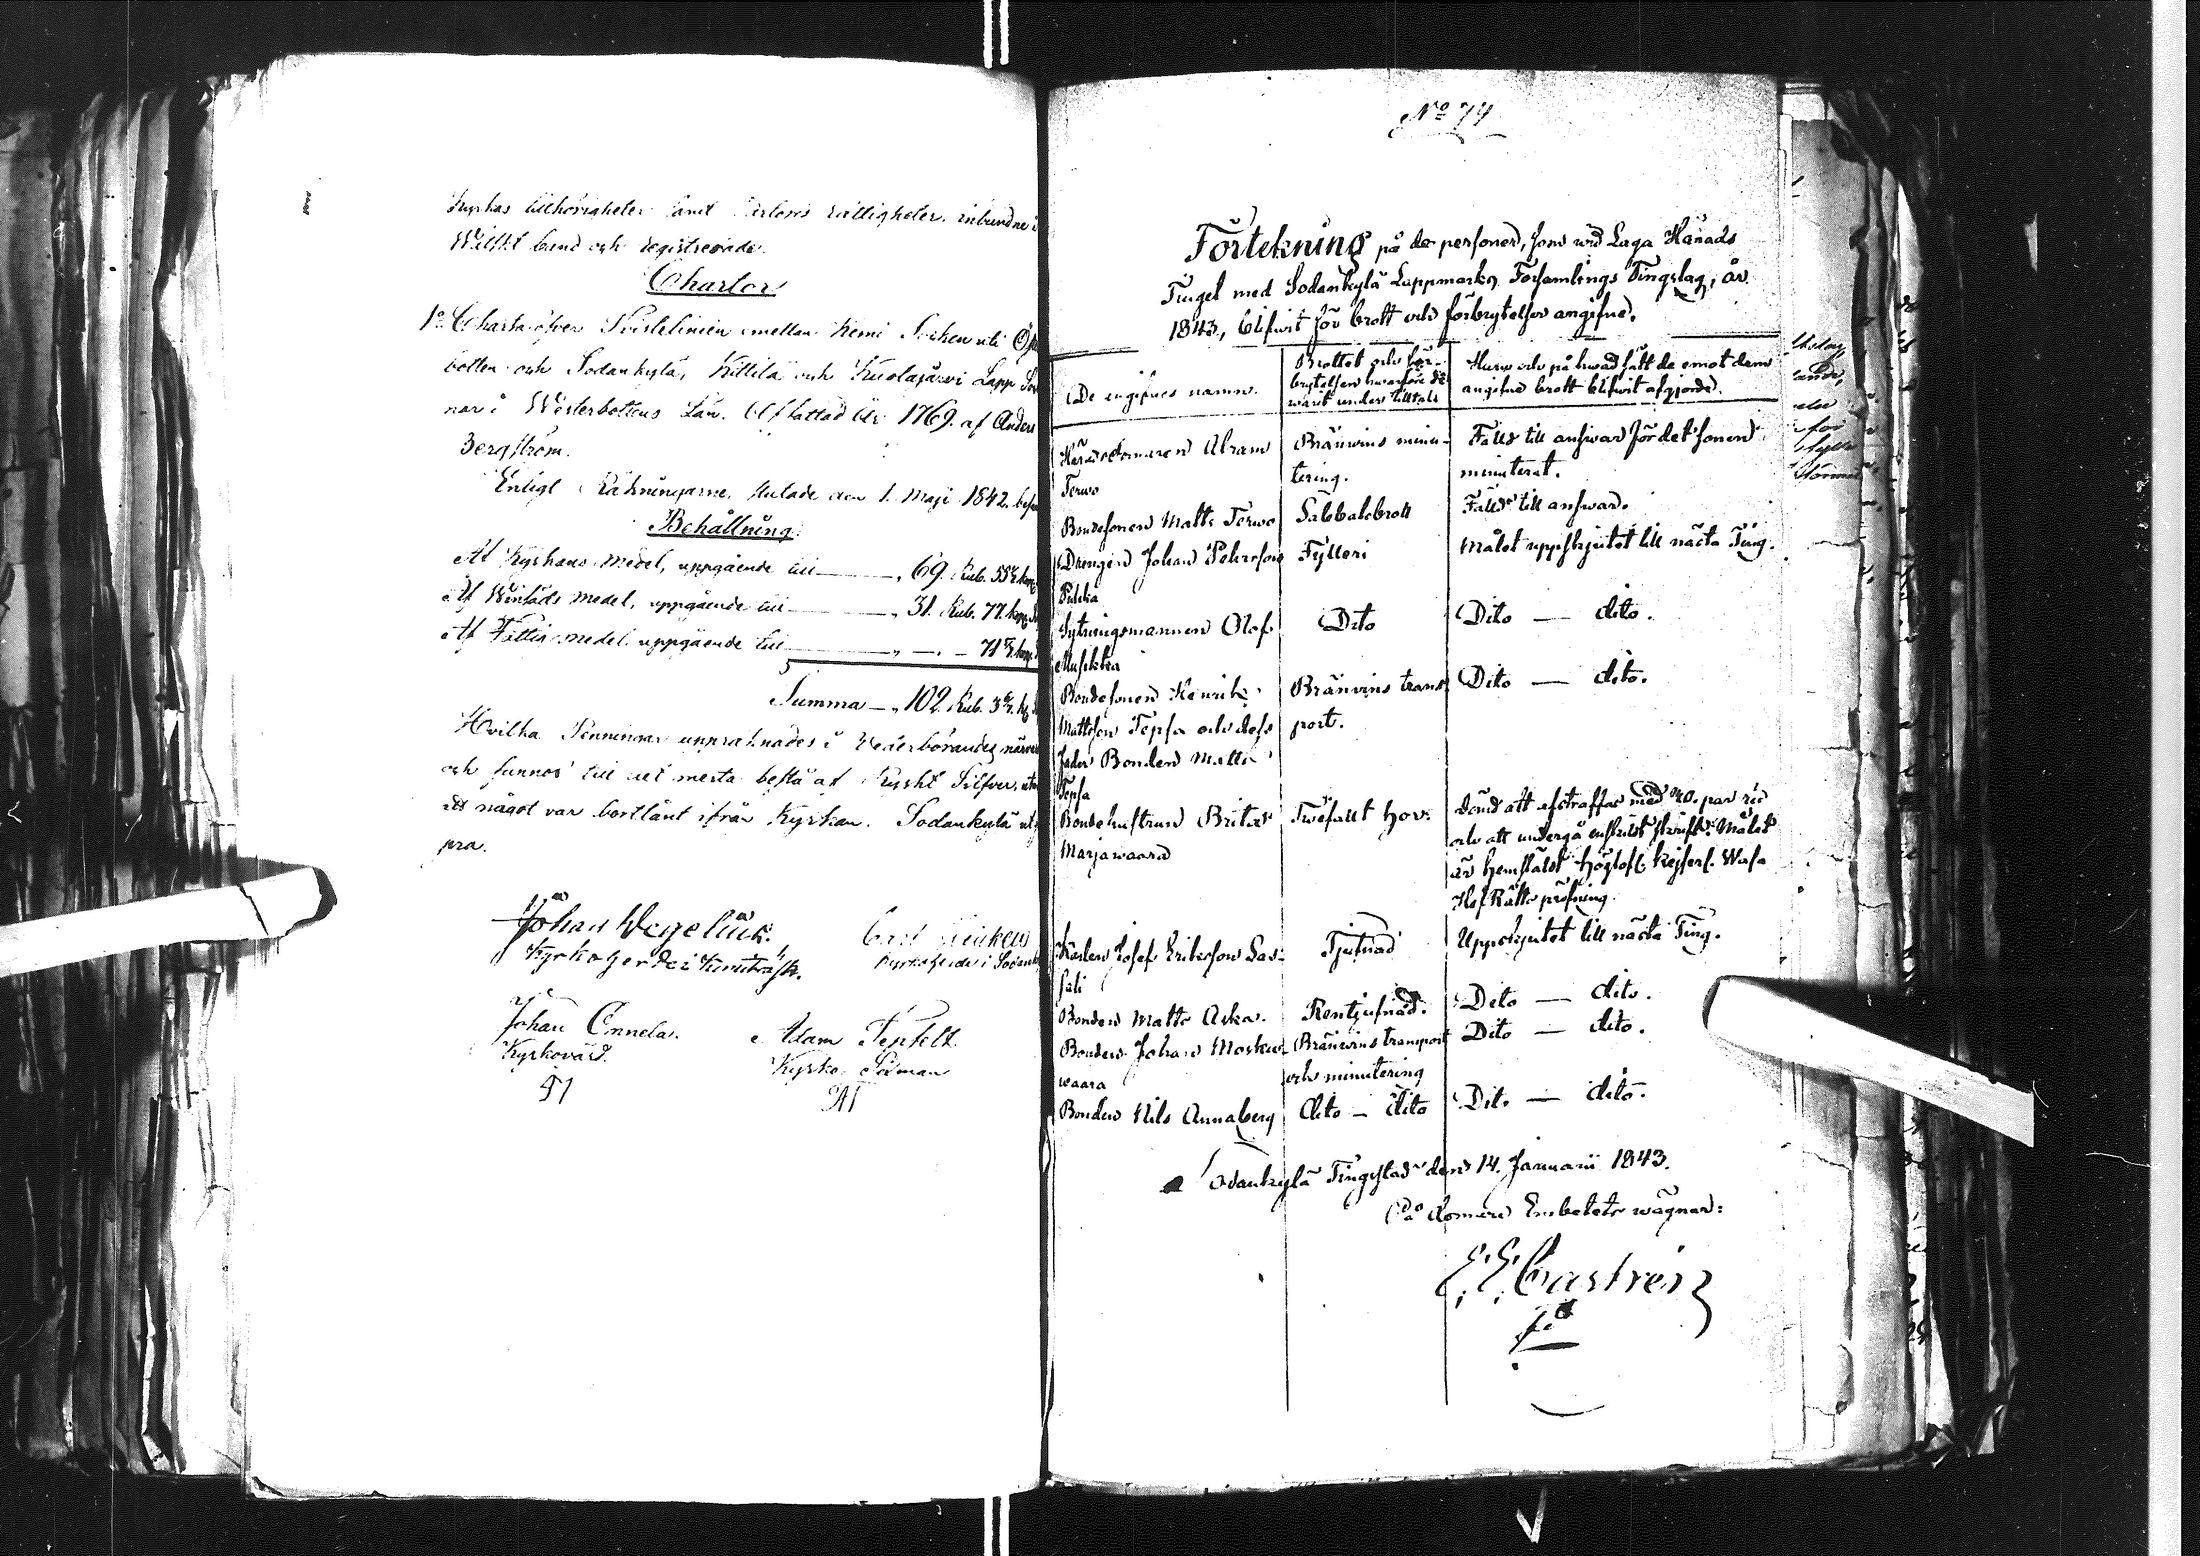 Kyrkas tillhörigheter samt rättigheter inbundne i
band och registrerade.
Chartor
1o Charta öfver Skillelinien emellan Kemi Socken uti Ös
botten och Sodankylä, Kittilä och Kuolajärvi Lapp Sock
nar i Westerbottens Län. Affattad År 1769. af Anders
Bergström.
Enligt Räkningarne, slutade den 1. Maji 1842.
Behållning
Af Kyrkans medel, uppgående till — „ 69. Rub.
Af Winsäds medel, uppgående till — „ 31. Rub. 77. kop.
Af Fattig medel uppgående till — „ — „ —
Summa — „ 102. Rub.
Hvilka Penningar uppräknades i Vederbörandes närvaro
och funnos till det mesta bestå af Ryskt Silfver, utan
att något var bortlånt ifrån Kyrkan. Sodankylä ut
pra.
Johan Wegelius.
Kyrkoherde i Kemiträsk.
Carl
Kyrkoherde i Sodank
Johan Onnela.
Kyrkovärd.
Adam
Kyrko
No 74
Förtekning på de personer, som wid Laga Härads
Tinget med Sodankylä Lappmarks Församlings Tingslag, år
1843, blifwit för brott och förbrytelser angifne.
De angifnes namn.
Brottet och för-
brytelsen hwarföre de
warit under tilltal.
Huru och på hwad sätt de emot dem
angifne brott blifwit afgjorde.
Häradsdomaren Abram
Terwo
Bränwins minu-
tering.
Fälld till answar för det sonen
minuterat.
Bondesonen Matts Terwo
Sabbatsbrott
Fälld till answar.
Drengen Johan Pehrsson
Pulska
Fylleri
Målet uppskjutet till nästa Ting.
Sytningsmannen Olof
Dito
Dito — dito.
Bondesonen Henrik
Mattsson Tepsa och dess
fader Bonden Matts
Tepsa
Bränvins trans
port.
Dito — dito.
Bondehustrun Brita
Marjawaara
Twefallt hor.
Dömd att afstraffas med 20. par ris
och att undergå enskildt skrift. Målet
är hemstäldt Höglofl. Kejserl. Wasa
Hof Rätts pröfning.
Karlen Josef Eriksson Sas-
sali
Tjufnad
Uppskjutet till nästa Ting.
Bonden Matts Aska.
Rentjufnad.
Dito — dito.
Bonden Johan Mosku-
waara
Bränwins transport
och minutering
Dito — dito.
Bonden Nils Annaberg
dito — dito
Dito — dito.
Sodankylä Tingstad den 14. Januarii 1843.
På domare Embetets wägnar:
E. E. Castrén